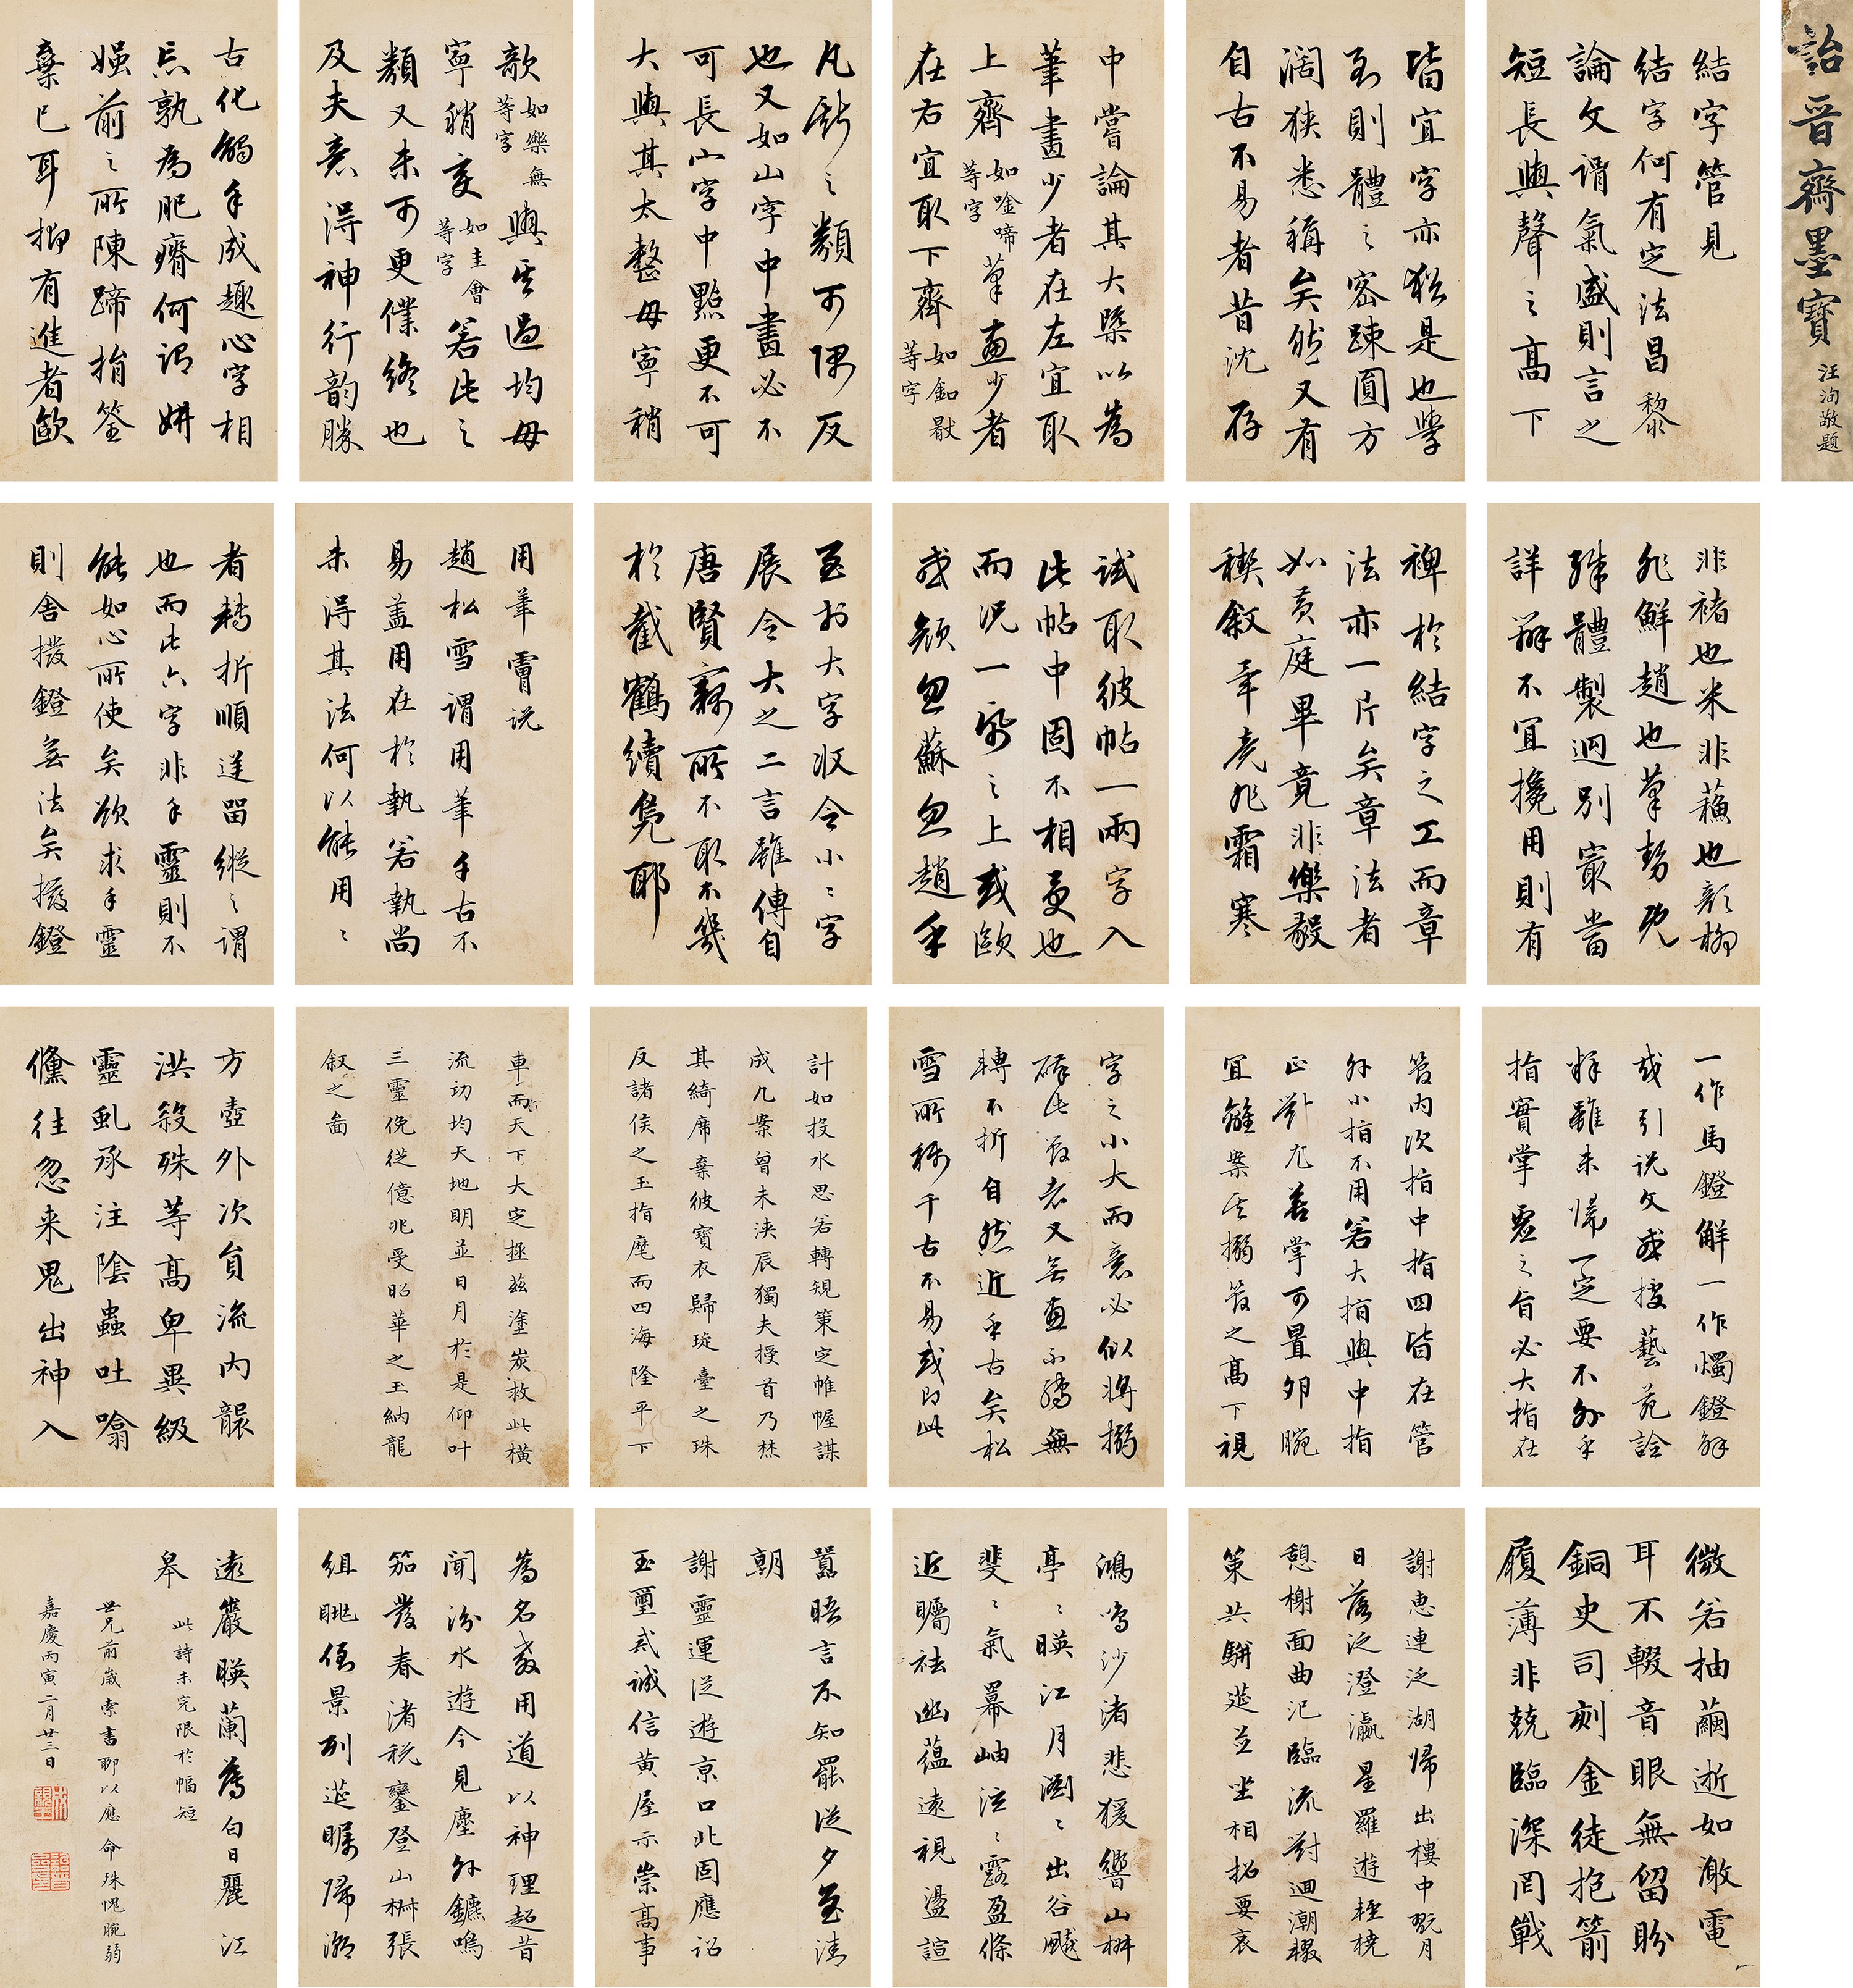 詒晉齋墨寶
汪洵敬題
結字管見
結字何有定法昌黎
論文謂氣盛則言之
短長與聲之高下
皆宜字亦猶是也學
至則體之密踈圓方
濶狹悉稱矣然又有
自古不易者昔沈存
中嘗論其大槩以為
筆畫少者在左宜取
上齊如唫啼等字筆畫少者
在右宜取下齊如釦
等字
凡 之類可隅反
也又如山字中畫必不
可長心字中點更不可
大與其太整毋寧稍
欹如樂無等字與其過均毋
寧稍變如圭會等字若此之
類又未可更僕終也
及夫意得神行韵勝
古化觸手成趣心字相
忘孰為肥瘠何謂妍
媸前之所陳蹄捐筌
棄已耳抑有進者歐
非褚也米非蘇也顏柳
非鮮趙也筆勢既
殊體製迥別寂當
詳辨不宜攙用則有
裨於結字之工而章
法亦一片矣章法者
如黃庭畢竟非樂毅
稧敘幸克非霜寒
試取彼帖一兩字入
此帖中固不相夏也
而況一 之上或歐
或顏忽蘇忽趙乎
至於大字收令小小字
展令大之二言雖傳自
唐賢竊所不取不幾
於截鶴續鳧耶
用筆膚說
趙松雪謂用筆千古不
易盖用在於執若執尚
未得其法何以能用用
者轉折順逆留縱之謂
也而此六字非手靈則不
能如心所使矣欲求手靈
則舍撥鐙無法矣撥鐙
一作馬鐙解一作燭鐙解
或引說文或援藝苑詮
釋雖未歸一定要不外乎
指實掌虛之旨必大指在
管內次指中指四皆在管
外小指不用若大指與中指
正對尤善掌可置卵腕
宜離案其搦管之高下視
字之小大而意必似將搦
碎此管者又無畫不騰無
轉不折自然近乎古矣松
雪所稱千古不易或即此
計如投水思若轉規策定帷幄謀
成几案曾未浹辰獨夫授首乃焚
其綺席棄彼寶衣歸琁臺之珠
反諸侯之玉指麾而四海隆平下
車而天下大定拯茲塗炭救此橫
流功均天地明並日月於是仰叶
三靈俛從億兆受昭華之玉納龍
叙之啚
方壺外次負流內襲
洪殺殊等高卑異級
靈虬承注陰蟲吐噏
儵往忽來鬼出神入
微若抽繭逝如激電
耳不輟音眼無留盼
銅史司刻金徒抱箭
履薄非兢臨深罔戰
謝惠連泛湖歸出樓中翫月
日落泛澄瀛星羅遊輕橈
憩榭面曲汜臨流對迴潮輟
策共駢莚並坐相招要哀
鴻鳴沙渚悲猨響山椒
亭亭暎江月瀏瀏出谷飈
斐斐氣羃岫泫泫露盈條
近矚袪幽蘊遠視盪諠
囂晤言不知罷從夕至清
朝
謝靈運從遊京口北固應詔
玉璽戒誠信黃屋示崇高事
為名教用道以神理超昔
聞汾水遊今見塵外鑣鳴
笳發春渚稅鑾登山椒張
組眺倒景列莚矚歸潮
遠巖暎蘭薄白日麗江
皋
此詩未完限於幅短
世兄前歲索書聊以應命殊愧腕弱
嘉慶丙寅二月廿三日